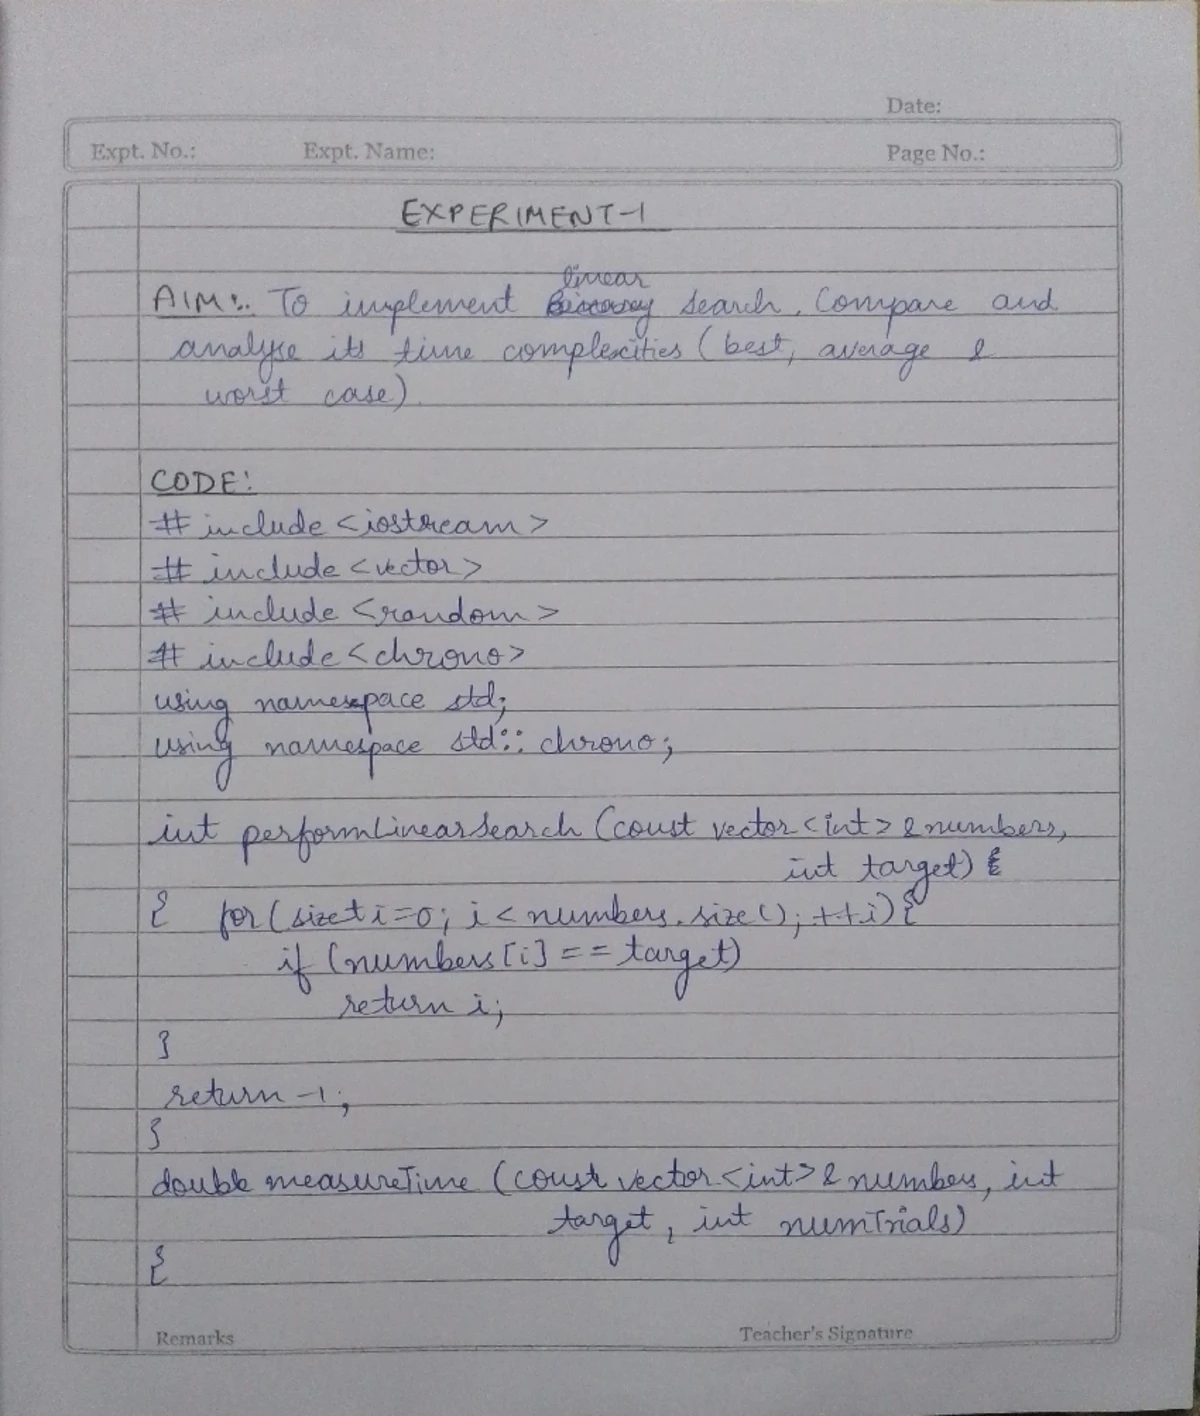 Date:
Expt. No.: Expt. Name: Page No.:
EXPERIMENT-1
linear
AIM:. To implement Binary Search. Compare and
analyse its time complexities (best, average &
worst case).
CODE:
# include <iostream>
# include <vector>
# include <random>
# include <chrono>
using namespace std;
using namespace std:: chrono;
int performLinearSearch (const vector <int> & numbers,
int target) {
{ for (size t i=0; i < numbers.size(); ++i) {
if (numbers[i] == target)
return i;
}
return -1;
}
double measureTime (const vector <int> & numbers, int
target, int numTrials)
{
Remarks Teacher's Signature